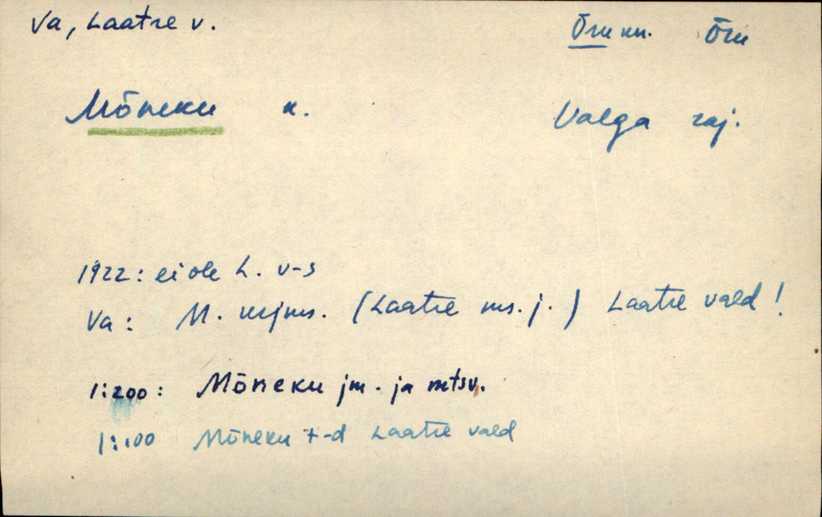 Va, Laatre v. Õru kn. Õru
Mõneku k. Valga raj.
1922: ei ole L. v-s
Va: M. mjms. (Laatre ms. j.) Laatre vald!
1:200: Mõneku jm. ja mtsv.
1:100 Mõneku t-d Laatre vald